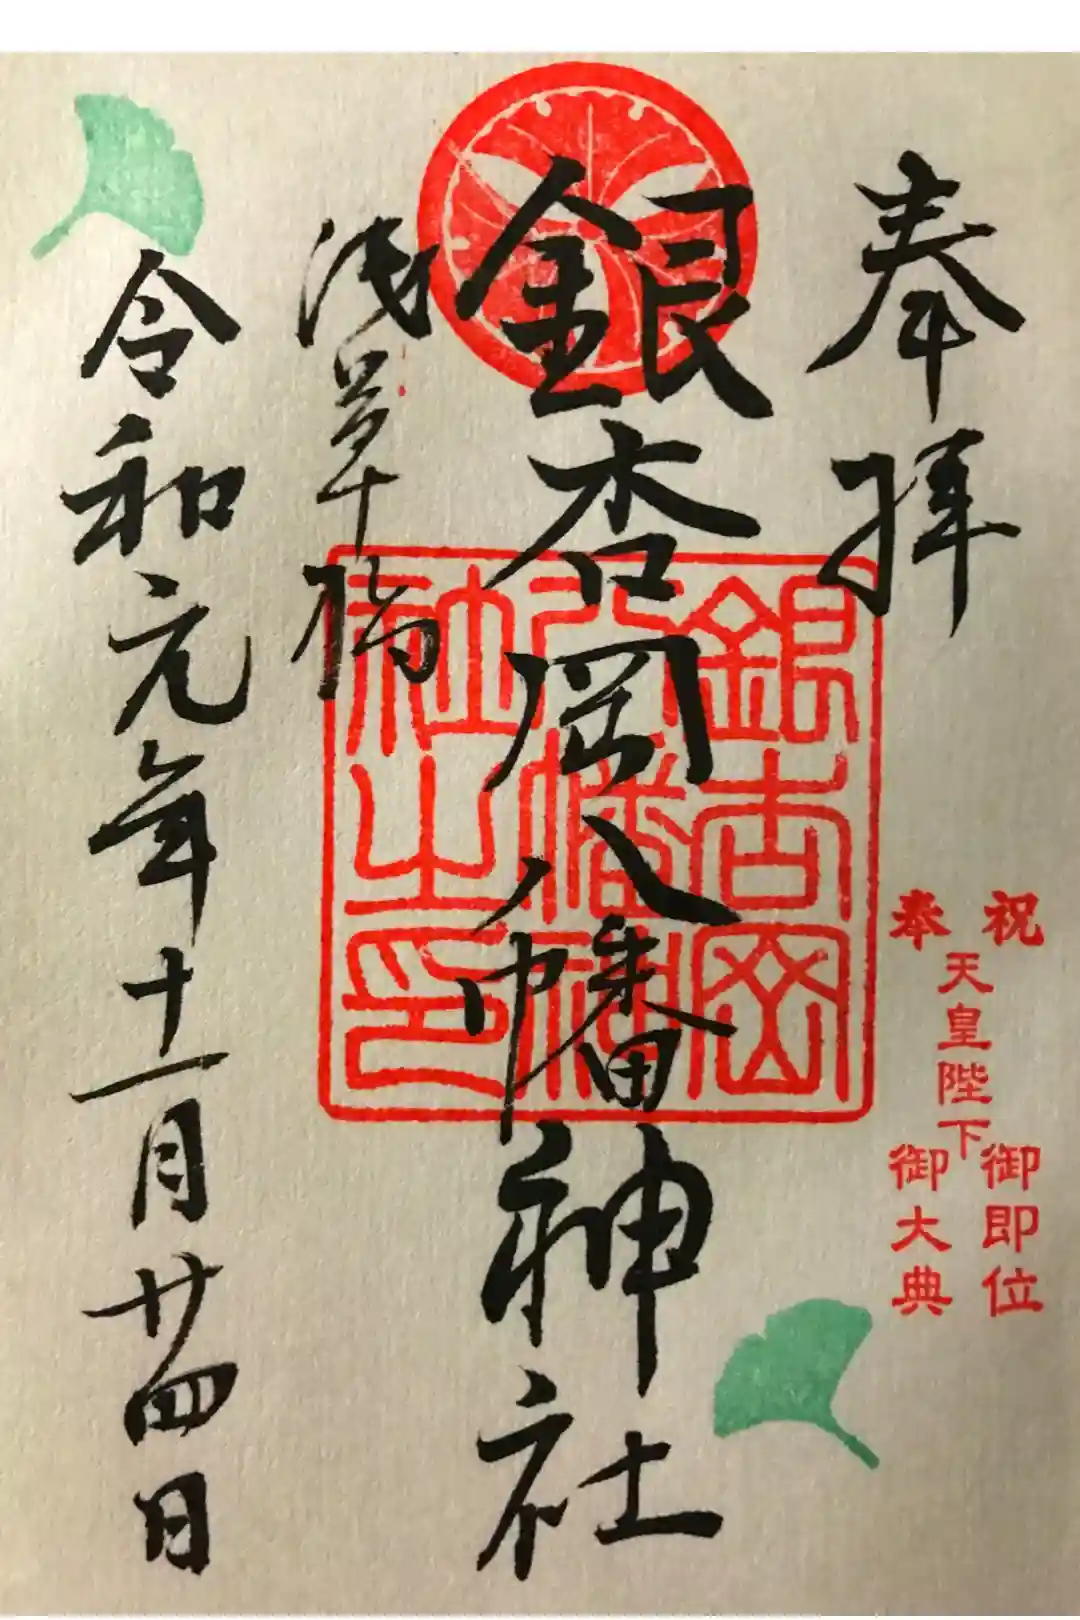 奉拝
祝 奉
天皇陛下
御即位
御大典
銀杏岡八幡神社
銀杏岡
八幡神
社之印
浅草橋
令和元年十一月廿四日